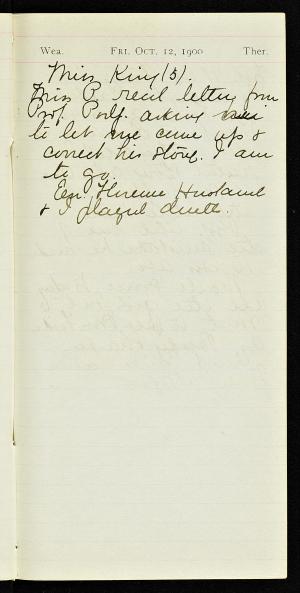 Wea. FRI. OCT. 12, 1900 Ther.
Miss King (5).
Miss P. rec'd letter from
Prof. asking
to let me come up &
correct his story. I am
to go.
Eve. Florence Husband
& I played duets.